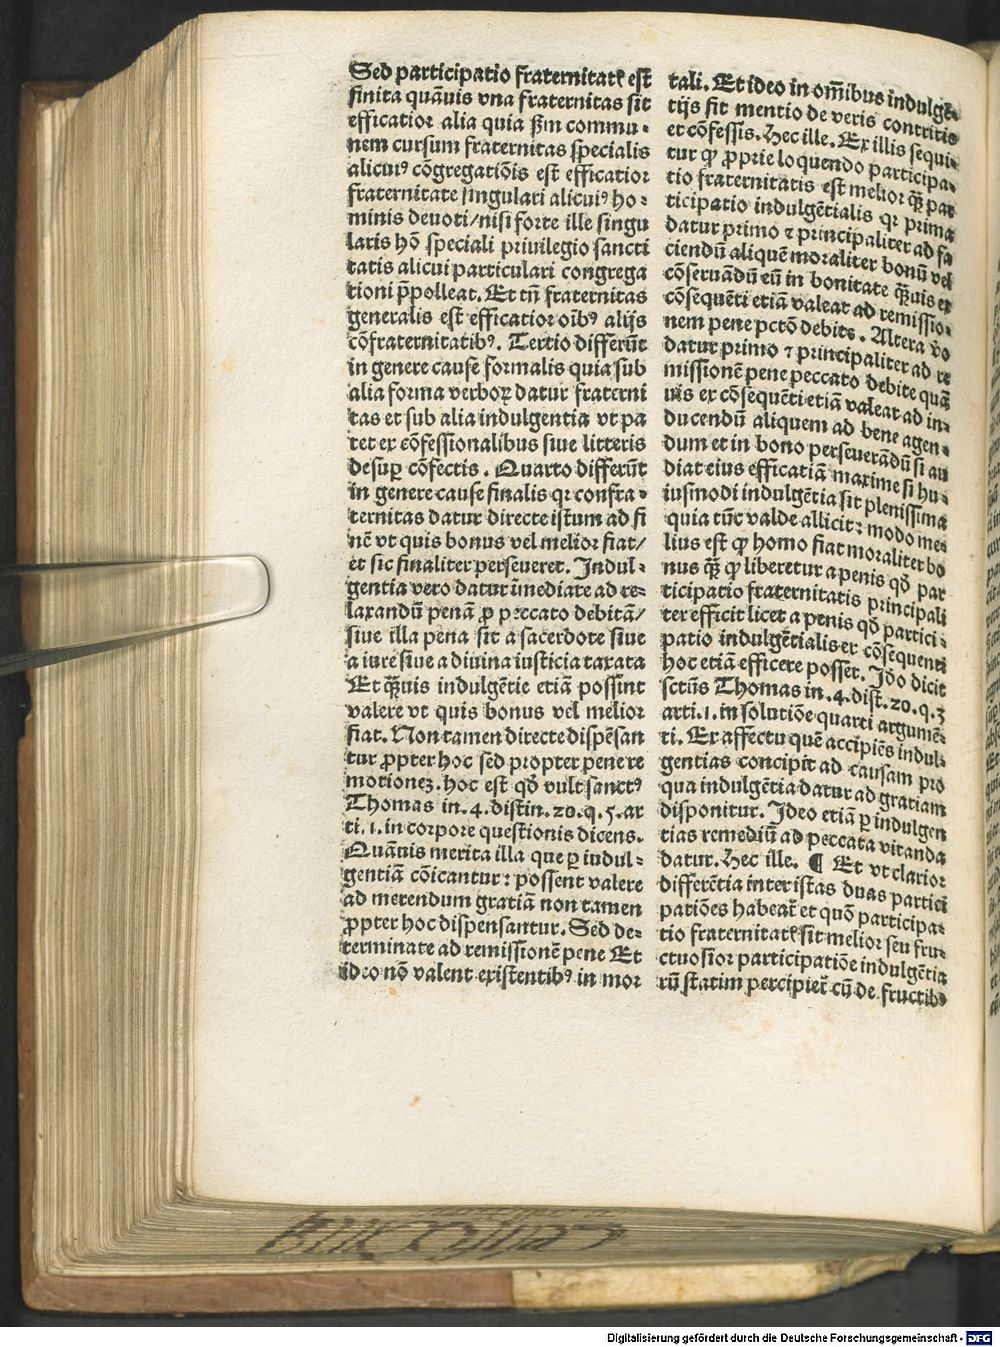 Sed participatio fraternitatꝭ est
finita quāuis vna fraternitas sit
efficatior alia quia ẜm commu-
nem cursum fraternitas specialis
alicuiꝰ cōgregatiōis est efficatior
fraternitate singulari alicuiꝰ ho-
minis deuoti/nisi forte ille singu
laris hō speciali priuilegio sancti
tatis alicui particulari congrega
tioni p̄polleat. Et tn̄ fraternitas
generalis est efficatior oībꝰ alijs
cōfraternitatibꝰ. Tertio differūt
in genere cause formalis quia sub
alia forma verboꝝ datur fraterni
tas et sub alia indulgentia vt pa
tet ex cōfessionalibus siue litteris
desuꝑ cōfectis. Quarto differūt
in genere cause finalis qꝛ confra-
ternitas datur directe istum ad fi
nē vt quis bonus vel melior fiat/
et sic finaliter perseueret. Indul-
gentia vero datur īmediate ad re-
laxandū penā ꝓ peccato debitā/
siue illa pena sit a sacerdote siue
a iure siue a diuina iusticia taxata
Et q̄̄uis indulgētie etiā possint
valere vt quis bonus vel melior
fiat. Non tamen directe dispēsan
tur ꝓpter hoc sed propter pene re
motioneꝫ. hoc est qd̄ vult sanctꝰ
Thomas in. 4. distin. 20. q. 5. ar
ti. 1. in corpore questionis dicens.
Quāuis merita illa que ꝑ indul-
gentiā cōicantur: possent valere
ad merendum gratiā non tamen
ꝓpter hoc dispensantur. Sed de-
terminate ad remissionē pene Et
ideo nō valent existentibꝰ in mor
tali. Et ideo in om̄ibus indulgē-
tijs fit mentio de veris contritis
et cōfessis. Hec ille. Ex illis sequi
tur ꝙ ꝓprie loquendo participa-
tio fraternitatis est melior q̄̄ par
ticipatio indulgētialis qꝛ prima
datur primo ⁊ principaliter ad fa
ciendū aliquē moraliter bonū vel
cōseruādū eū in bonitate q̄̄uis ex
cōsequēti etiā valeat ad remissio-
nem pene pctō debite. Altera v̄o
datur primo ⁊ principaliter ad re
missionē pene peccato debite quā
uis ex cōsequēti etiā valeat ad in-
ducendū aliquem ad bene agen-
dum et in bono perseuerādū si au
diat eius efficatiā maxime si hu-
iusmodi indulgētia sit plenissima
quia tūc valde allicit: modo me-
lius est ꝙ homo fiat moraliter bo
nus q̄̄ ꝙ liberetur a penis qd̄ par
ticipatio fraternitatis principali
ter efficit licet a penis qd̄ partici-
patio indulgētialis ex cōsequenti
hoc etiā efficere posset. Ido dicit
sctūs Thomas in. 4. dist. 20. q. 3
arti. 1. in solutiōe quarti argumē-
ti. Ex affectu quē accipiēs indul-
gentias concipit ad causam pro
qua indulgētia datur ad gratiam
disponitur. Ideo etiā ꝑ indulgen
tias remediū ad peccata vitanda
datur. Hec ille. ¶ Et vt clarior
differētia inter istas duas partici
patiōes habeat̄ et quō participa-
tio fraternitatꝭ sit melior seu fru-
ctuosior participatiōe indulgētia
rū statim percipiet̄ cū de fructibꝰ
Digitalisierung gefördert durch die Deutsche Forschungsgemeinschaft - DFG